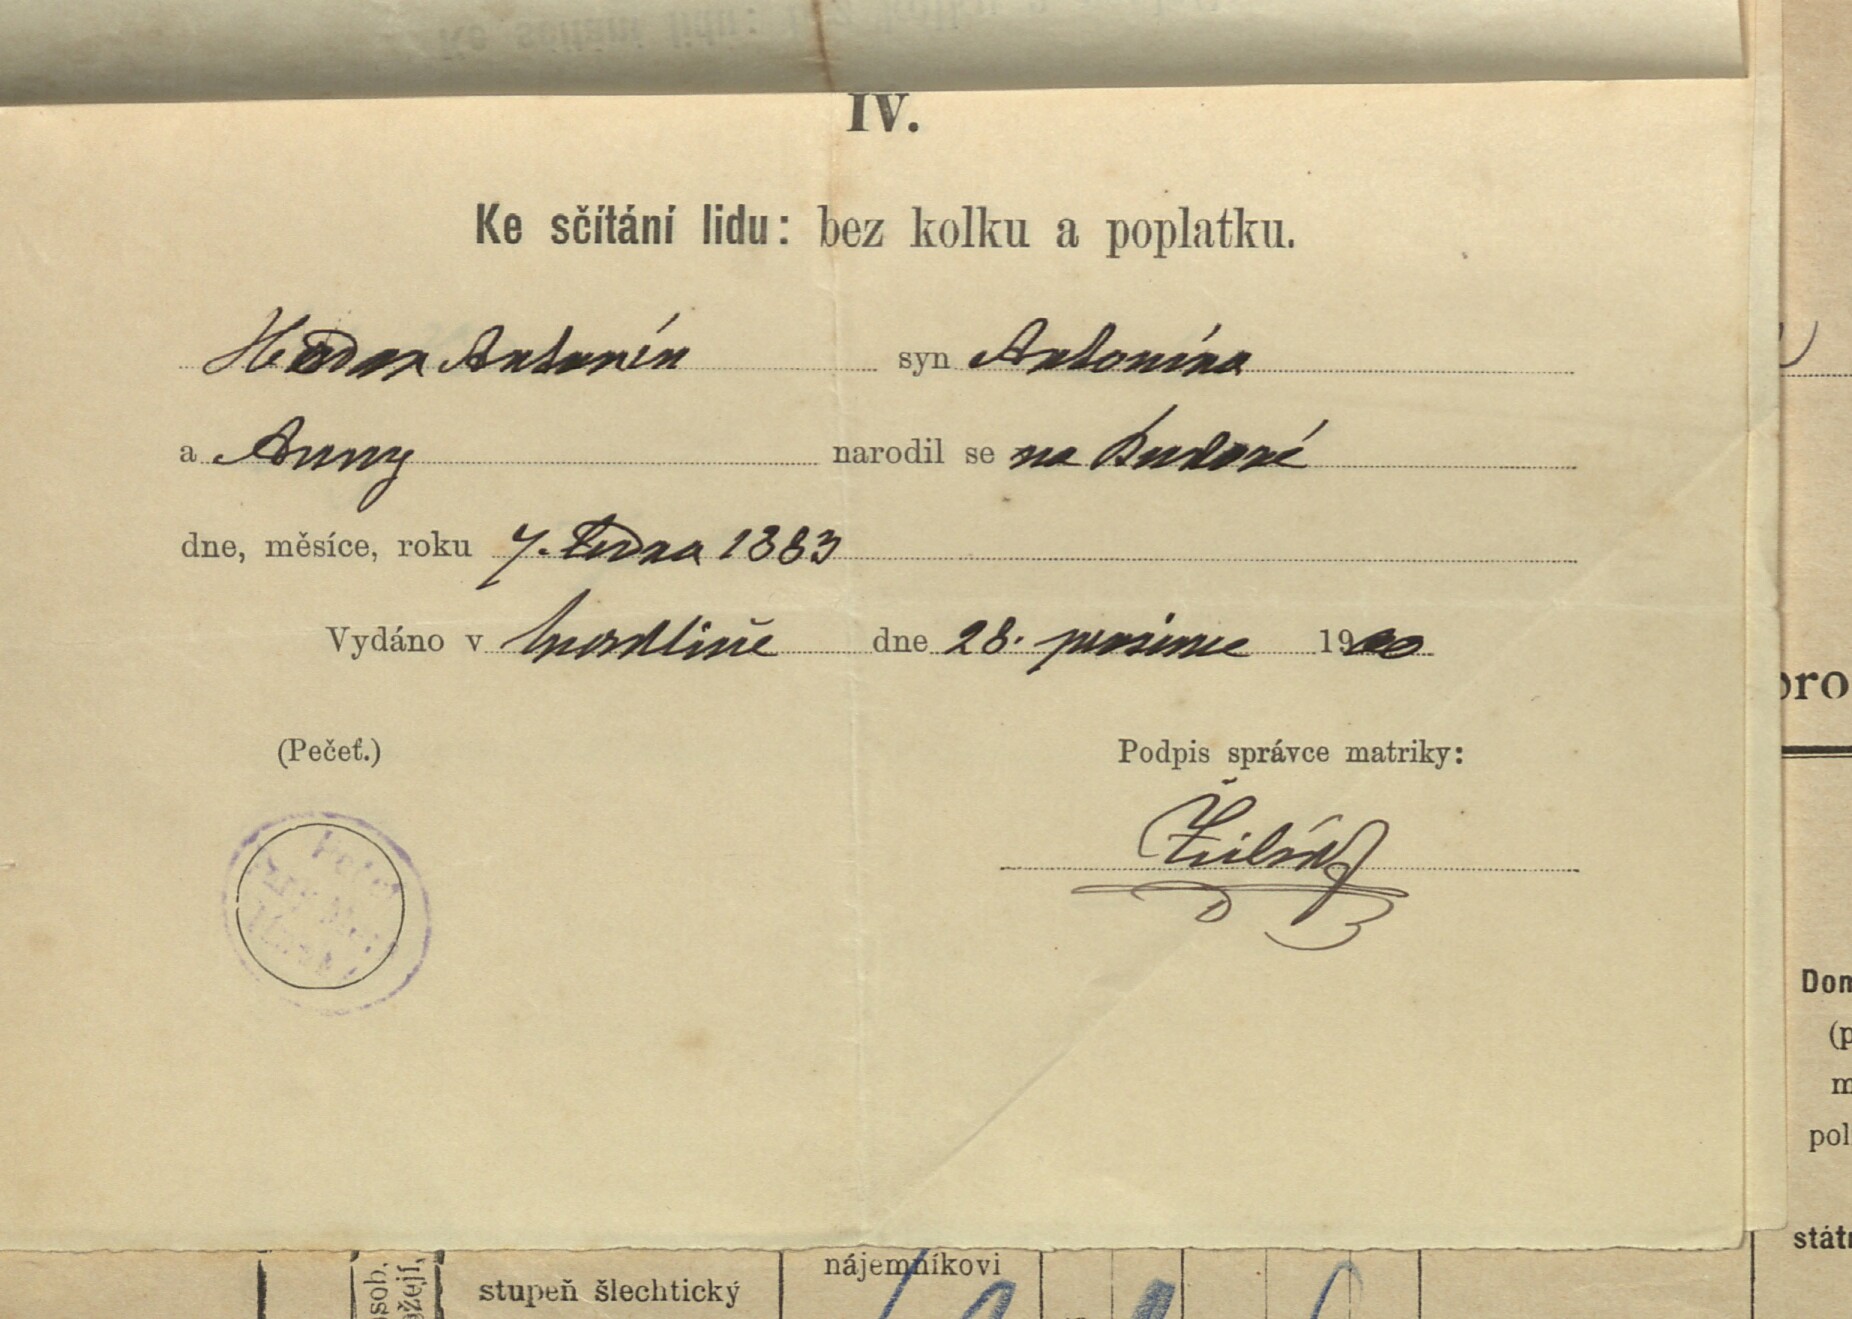 IV.
Ke sčítání lidu: bez kolku a poplatku.
Antonín syn Antonína
a Anny narodil se na
dne, měsíce, roku 7. ledna 1883
Vydáno v dne 28. prosince 1900
(Pečeť.)
Podpis správce matriky:
pro
Dom
(p
m
pol
státn
osob.
ožejí,
stupeň šlechtický
nájemníkovi